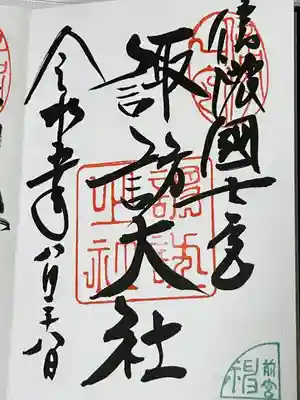 信濃國一之宮
諏訪大社
令和五年八月二十八日
前宮